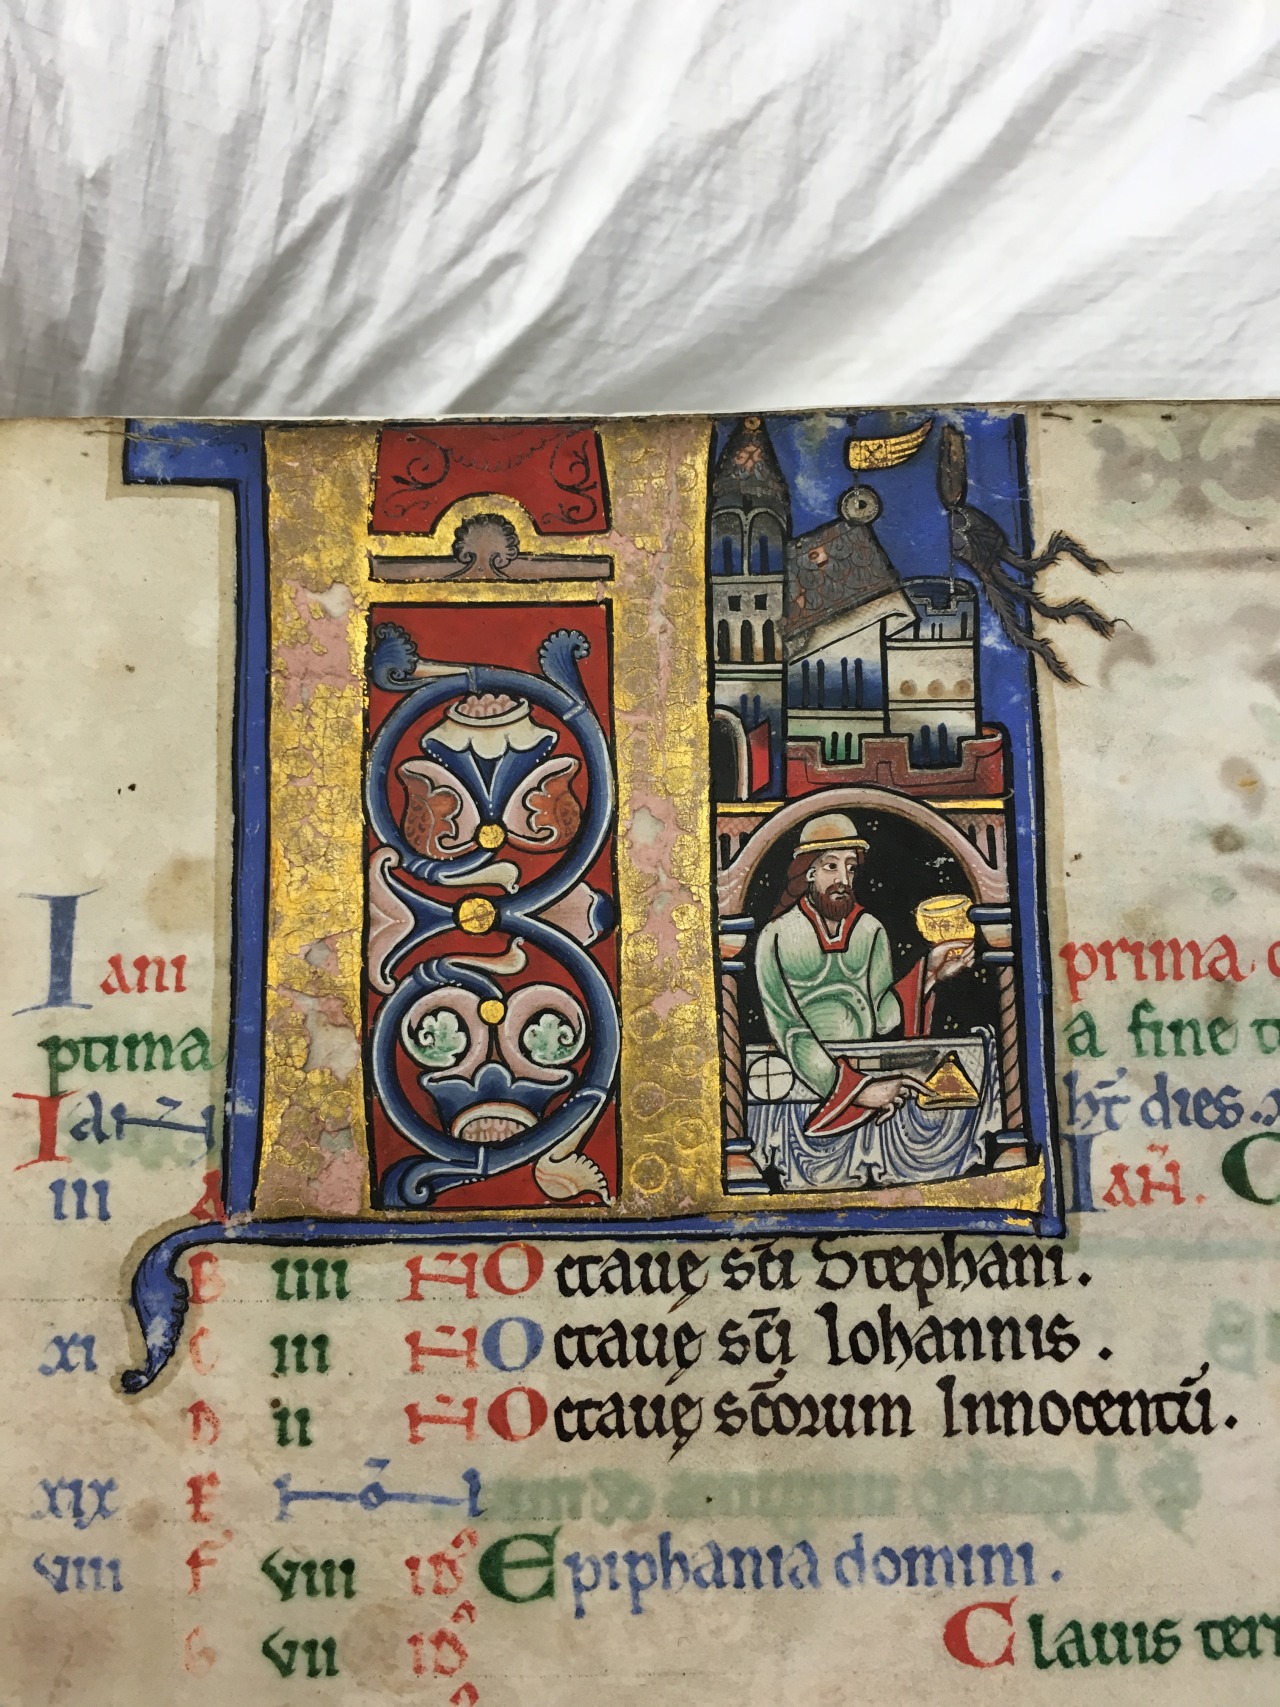 Iani prima
prima a fine
Ian hr̄ dies.
III A Iañ. C
B IIII N Octauę sc̄i Stephani.
XI C III N Octauę sc̄i Iohannis.
D II N Octauę sc̄orum Innocentū.
XIX E
VIII F VIII ID Epiphania domini.
G VII ID Clauis ter